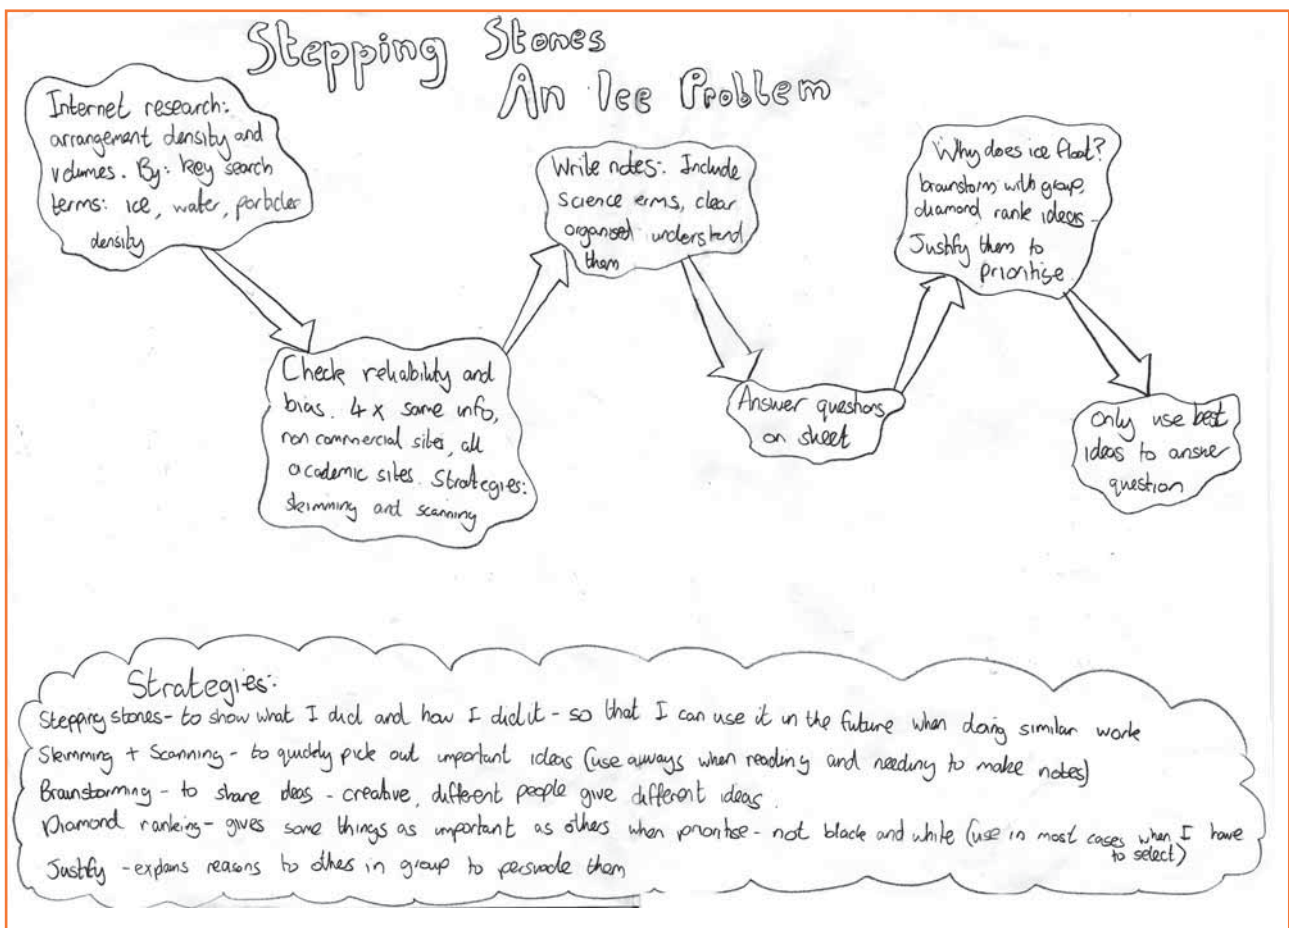 Stepping Stones
An Ice Problem
Internet research:
arrangement density and
volumes. By: key search
terms: ice, water, particles
density
Check reliability and
bias. 4x same info,
non commercial sites, all
academic sites. Strategies:
skimming and scanning
Write notes: Include
science erms, clear
organised understand
them
Answer questions
on sheet
Why does ice float?
brainstorm with group,
diamond rank ideas -
Justify them to
prioritise
Only use best
ideas to answer
question
Strategies:
Stepping stones - to show what I did and how I did it - so that I can use it in the future when doing similar work
Skimming + Scanning - to quickly pick out important ideas (use always when reading and needing to make notes)
Brainstorming - to share ideas - creative, different people give different ideas.
Diamond ranking - gives some things as important as others when prioritise - not black and white (use in most cases when I have
to select)
Justify - explains reasons to others in group to persuade them